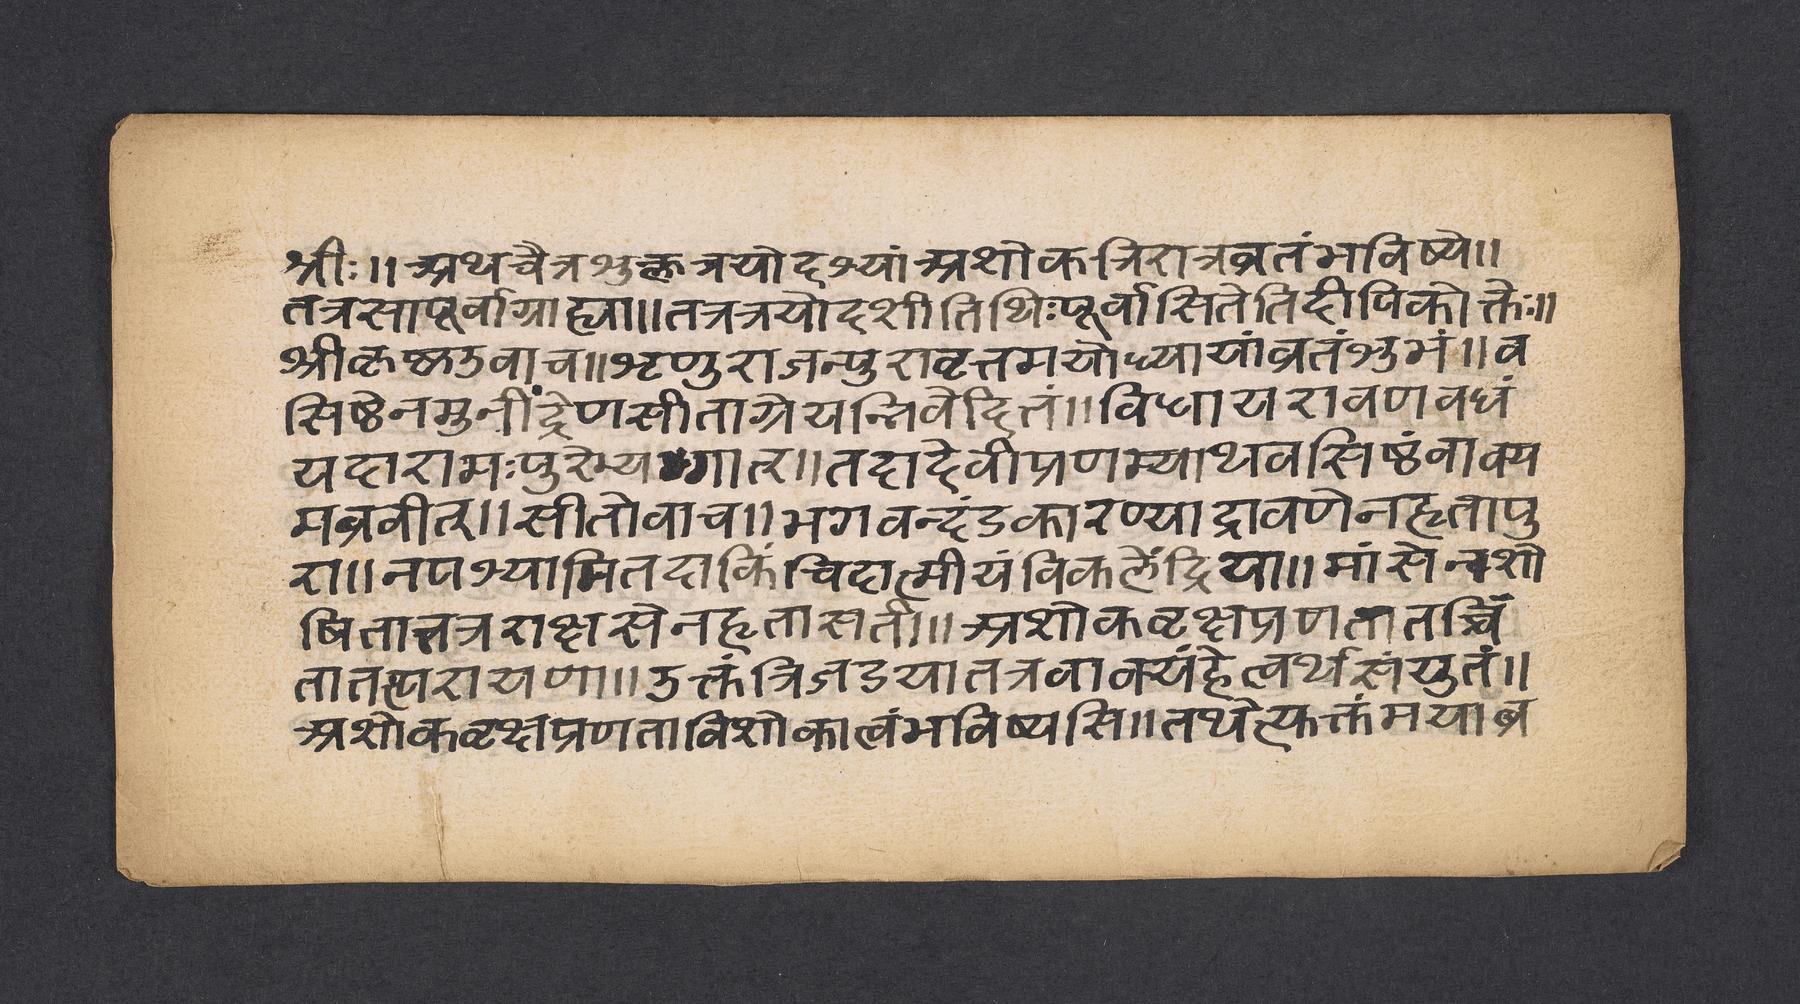 श्रीः॥ अथचैत्रशुक्लत्रयोदश्यांअशोकत्रिरात्रव्रतंभविष्ये॥
तत्रसापूर्वाग्राह्या॥तत्रत्रयोदशीतिथिःपूर्वासितेतिदीपिकोक्तेः॥
श्रीकृष्णउवाच॥शृणुराजन्पुरावृत्तमयोध्यायांव्रतंशुभं॥व
सिष्ठेनमुनींद्रेणसीताग्रेयन्निवेदितं॥विधायरावणवधं
यदारामःपुरेभ्यगात्॥तदादेवीप्रणम्याथवसिष्ठंवाक्य
मब्रवीत्॥सीतोवाच॥भगवन्दंडकारण्याद्रावणेनहृतापु
रा॥नपश्यामितदाकिंचिदात्मीयंविकलेंद्रिया॥मांसेनशो
षितातत्रराक्षसेनहृतासती॥अशोकवृक्षप्रणतातच्चिं
तातत्परायणा॥उक्तंत्रिजडयातत्रवाक्यंहेत्वर्थसंयुतं॥
अशोकवृक्षप्रणताविशोकात्वंभविष्यसि॥तथेत्यक्तंमयाव्र